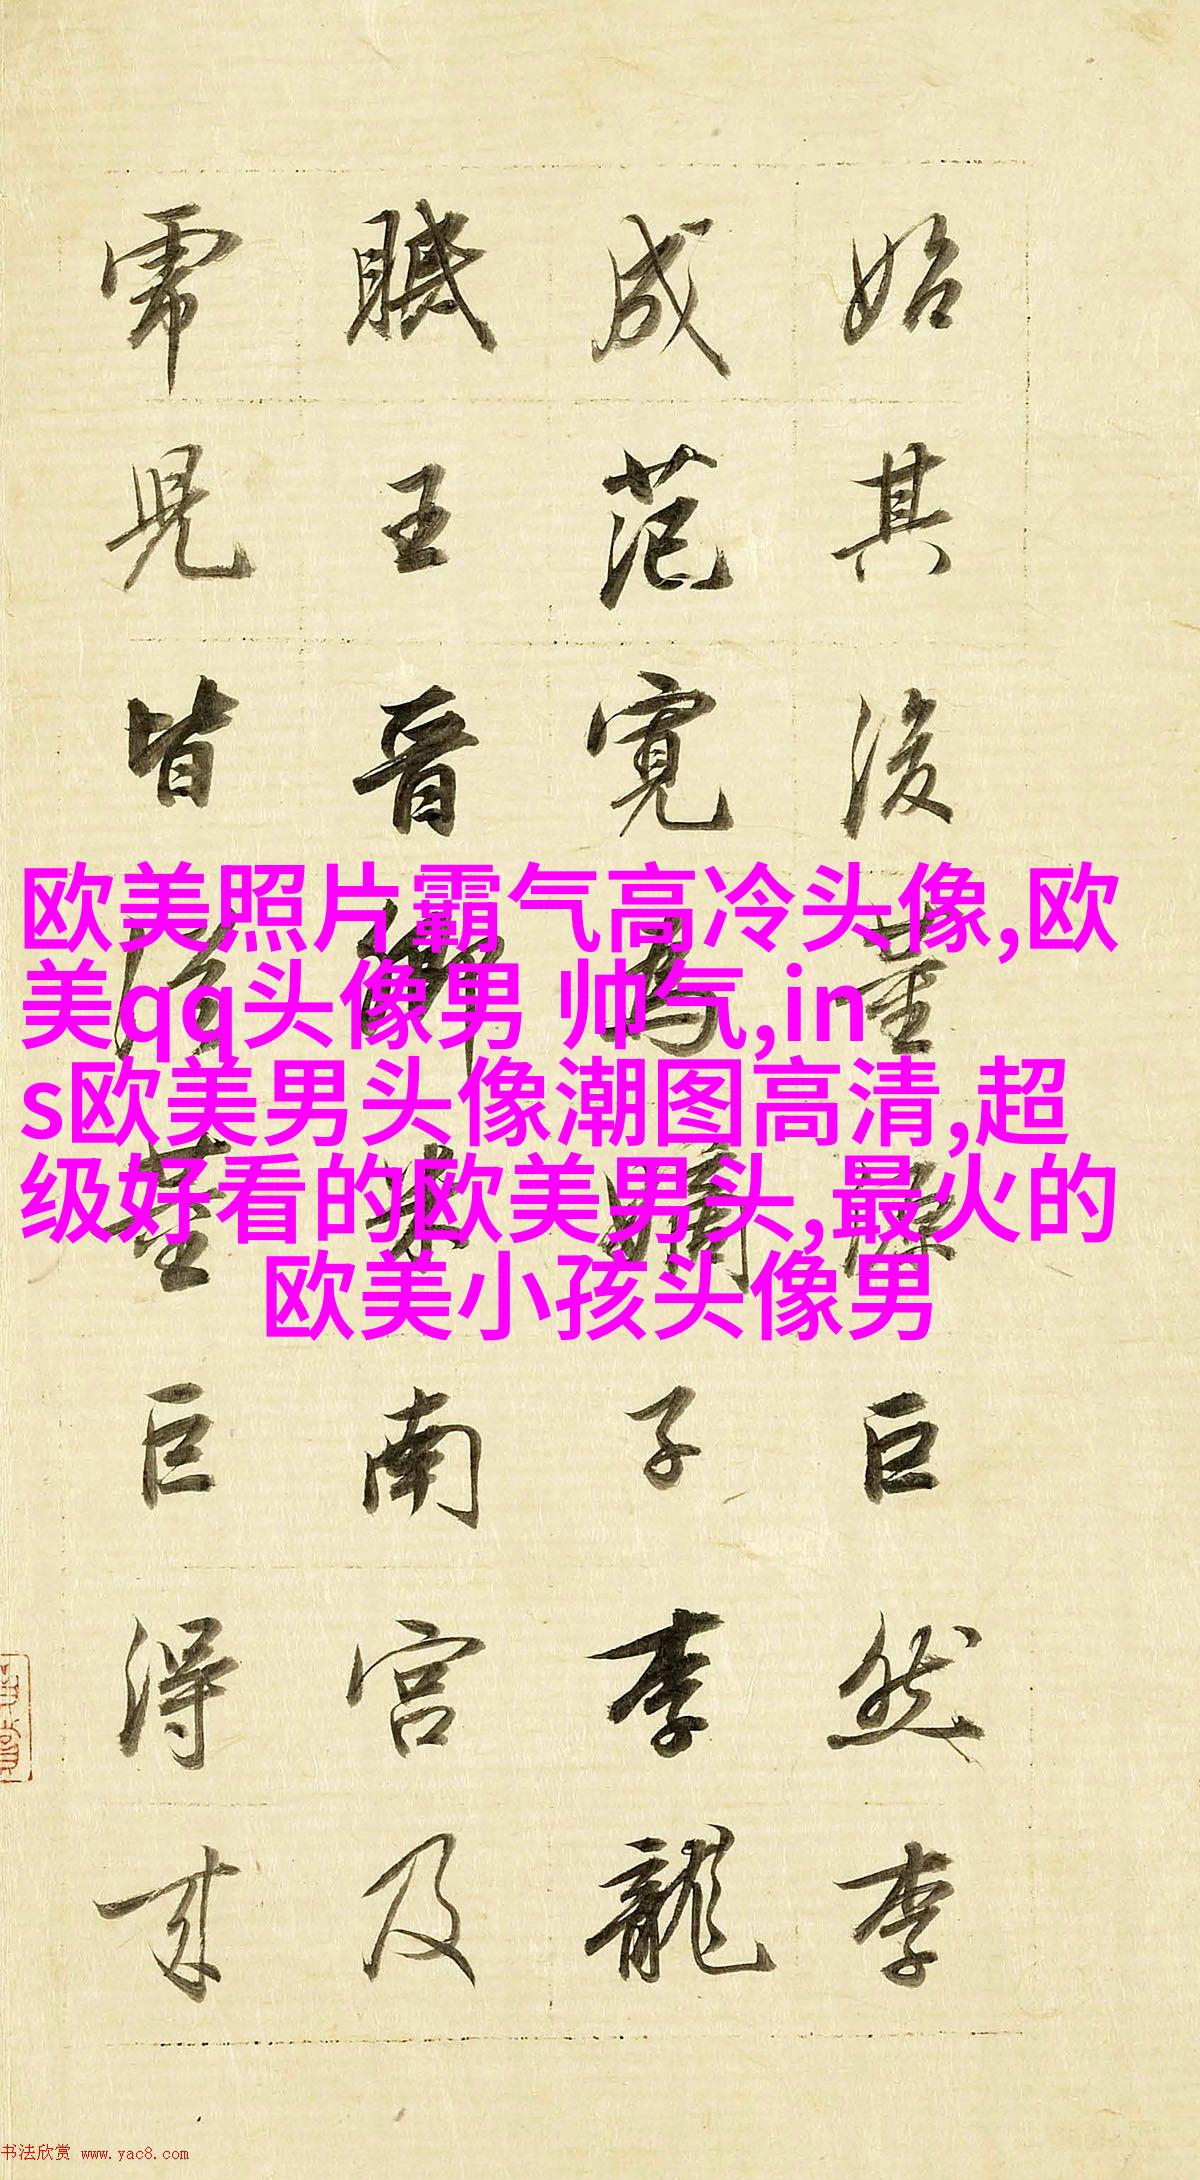 始其後董源巨然李
成范寬為嫡子李龍
眠王晋卿米南宫及
虎兒皆従董巨得来
欧美照片霸气高冷头像,欧
美qq头像男 帅气,in
s欧美男头像潮图高清,超
级好看的欧美男头,最火的
欧美小孩头像男
书法欣赏 www.yac8.com